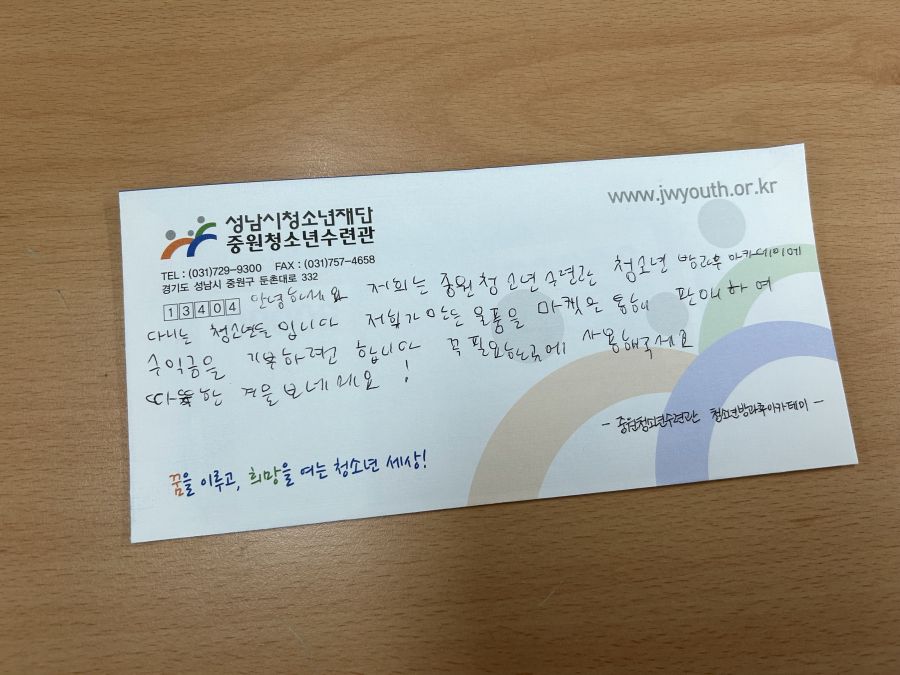 www.jwyouth.or.kr
성남시청소년재단
중원청소년수련관
TEL : (031)729-9300 FAX : (031)757-4658
경기도 성남시 중원구 둔촌대로 332
13404
안녕하세요 저희는 중원청소년수련관 청소년 방과후 아카데미에
다니는 청소년들 입니다 저희가 만든 물품을 마켓은 통해 판매하여
수익금을 기부하려 합니다 꼭 필요한곳에 사용해주세요
따뜻한 겨울보네세요 !
- 중원청소년수련관 청소년방과후아카데미 -
꿈을 이루고, 희망을 여는 청소년 세상!